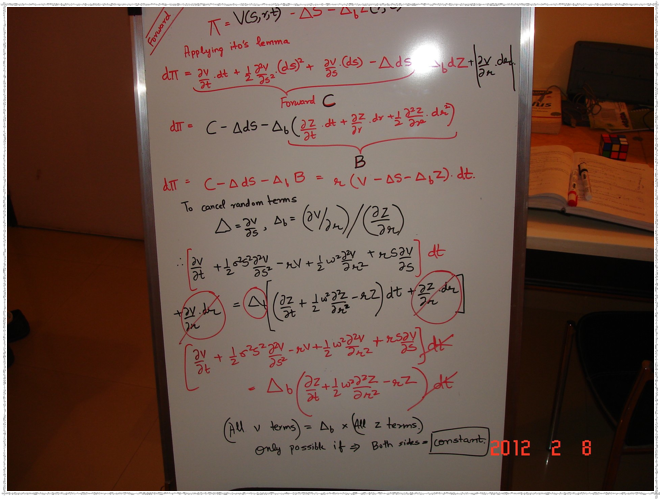 Forward
π = V(S,r,t) - ΔS - Δ_b
Applying Ito's lemma
dπ = ∂V/∂t . dt + 1/2 ∂²V/∂S² . (ds)² + ∂V/∂S . (ds) - Δ ds - Δ_b dZ + ∂V/∂r . dr
Forward C
dπ = C - Δds - Δ_b (∂Z/∂t . dt + ∂Z/∂r . dr + 1/2 ∂²Z/∂r² . dr²)
B
dπ = C - Δds - Δ_b B = r (V - ΔS - Δ_b Z) . dt.
To cancel random terms
Δ = ∂V/∂S, Δ_b = (∂V/∂r) / (∂Z/∂r)
∴ [∂V/∂t + 1/2 σ²S² ∂²V/∂S² - rV + 1/2 ω² ∂²V/∂r² + rS ∂V/∂S] dt
+ ∂V/∂r . dr = Δ_b [(∂Z/∂t + 1/2 ω² ∂²Z/∂r² - rZ) dt + ∂Z/∂r . dr]
[∂V/∂t + 1/2 σ²S² ∂²V/∂S² - rV + 1/2 ω² ∂²V/∂r² + rS ∂V/∂S] dt
= Δ_b (∂Z/∂t + 1/2 ω² ∂²Z/∂r² - rZ) dt
(All V terms) = Δ_b × (All Z terms)
Only possible if ⇒ Both sides = constant.
2012 2 8